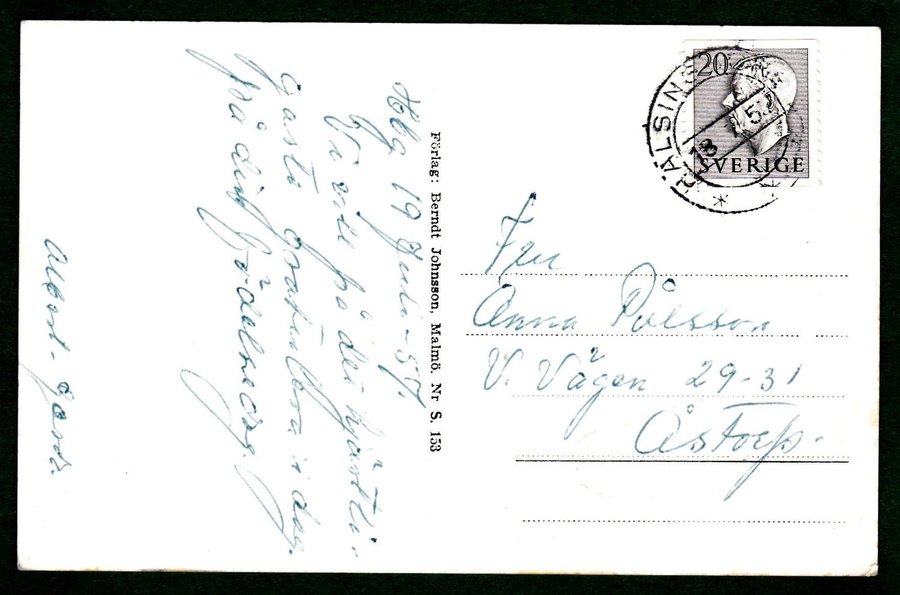 Hbg 19 Juli -57.
Vi ville på det hjärtli-
gaste gratulera i dag.
på din födelsedag.
Albert - Gerda
Förlag: Berndt Johnsson, Malmö. Nr S. 153
20
SVERIGE
HÄLSING
Fru
Anna Pålsson
V. Vägen 29-31
Åstorp.